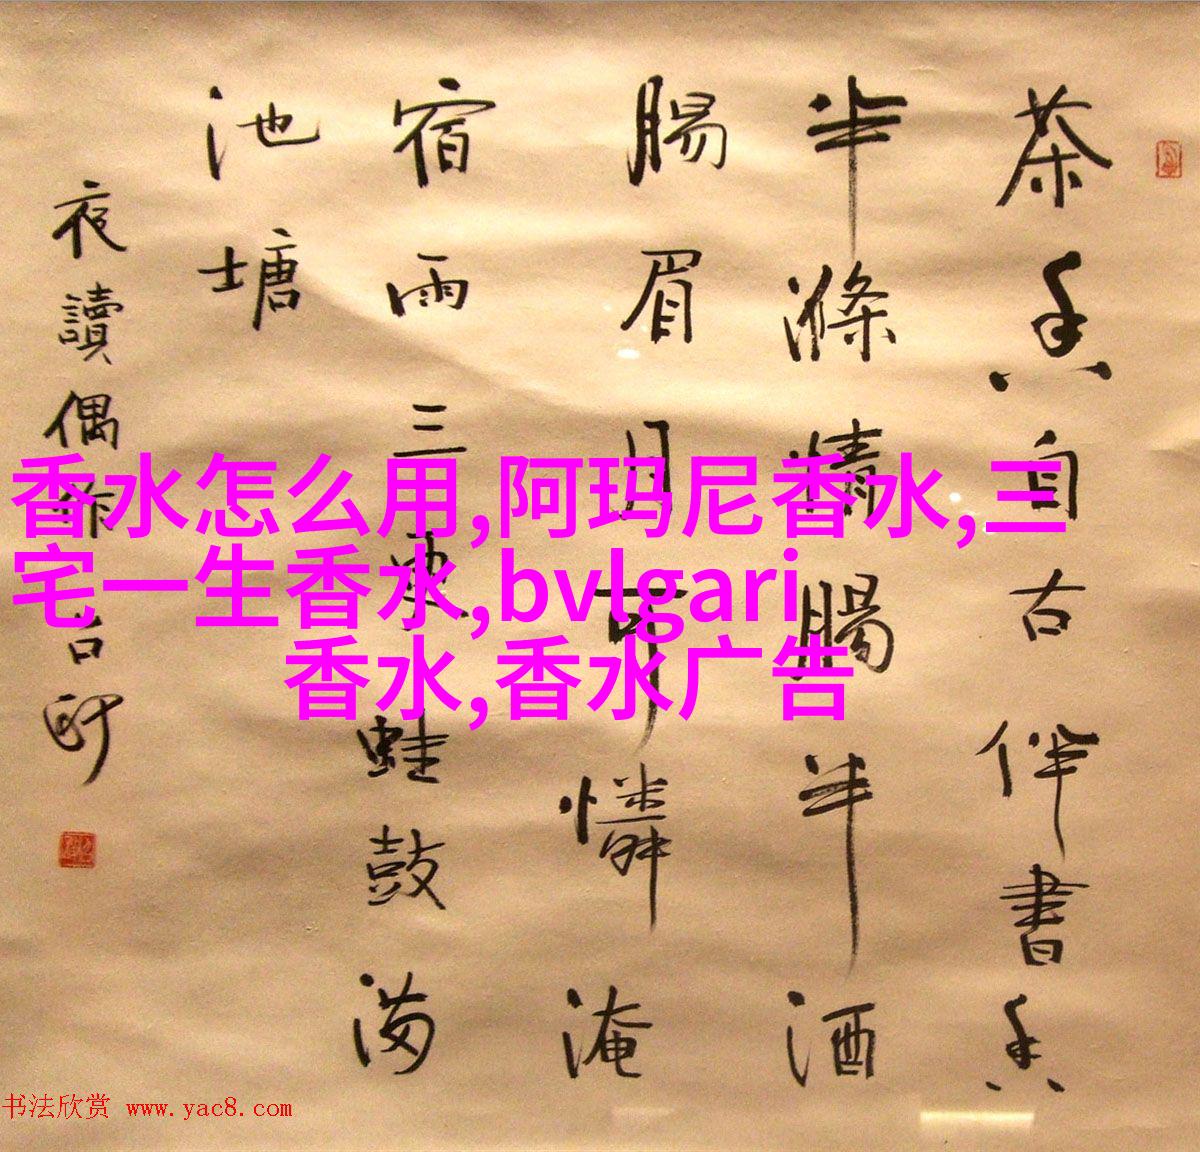 茶香自古伴書香
半滌情腸半酒
腸眉月可憐淹
宿雨三更蛙鼓满
池塘
夜讀偶作
香水怎么用,阿玛尼香水,三
宅一生香水,bvlgari
香水,香水广告
书法欣赏 www.yac8.com